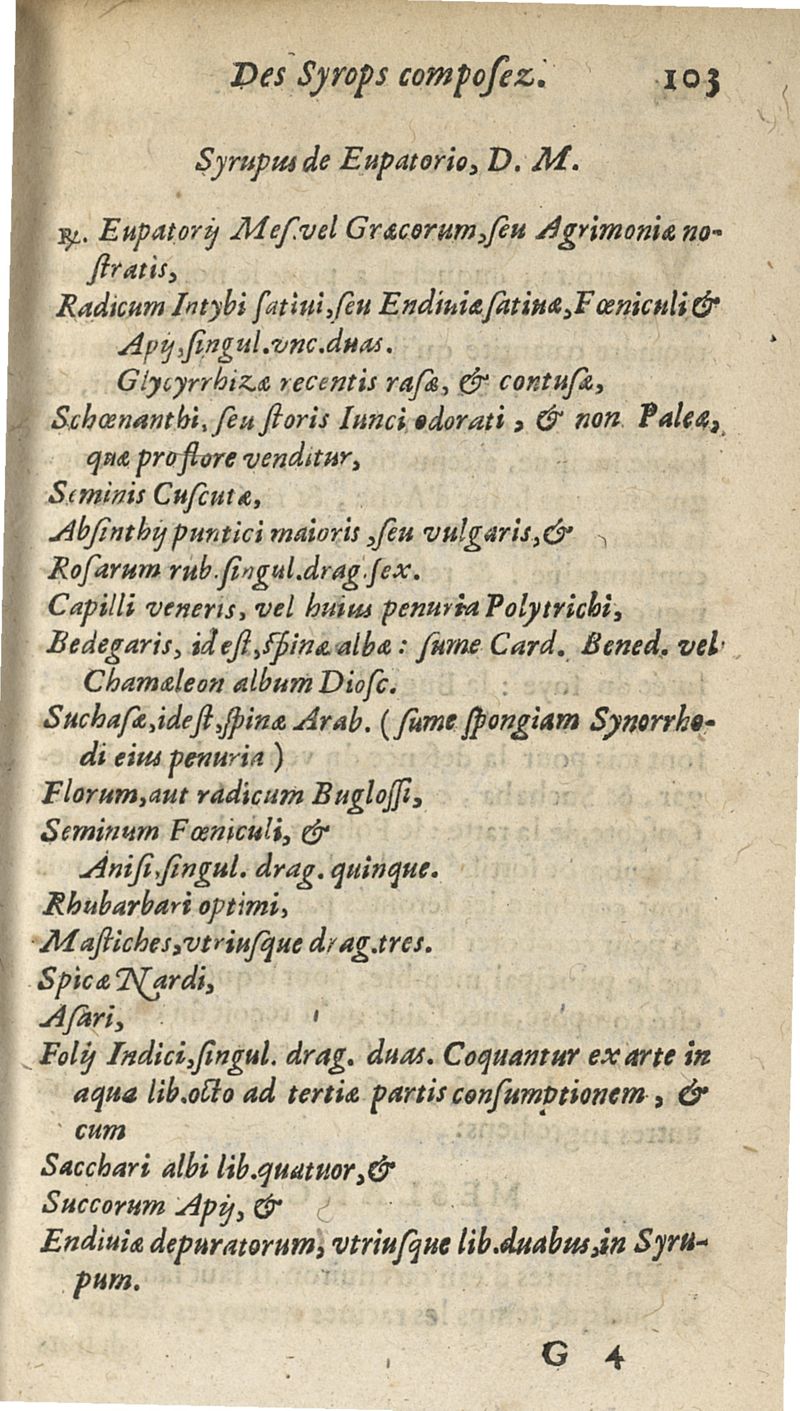 Des Syrops compoſez. 103
Syrupus de Eupatorio, D. M.
℞. Eupatorij Meſ.vel Græcorum,ſeu Agrimoniæ no-
ſtratis,
Radicum Intybi ſatiui,ſeu Endiuiæ ſatiuæ,Fœniculi &
Apij,ſingul.vnc.duas.
Glycyrrhizæ recentis raſæ, & contuſæ,
Schœnanthi, ſeu floris Iunci odorati, & non Paleæ,
quæ pro flore venditur,
Seminis Cuſcutæ,
Abſinthij puntici maioris ,ſeu vulgaris,&
Roſarum rub.ſingul.drag.ſex.
Capilli veneris, vel huius penuria Polytrichi,
Bedegaris, id eſt,ſpinæ albæ : ſume Card. Bened. vel
Chamæleon album Dioſc.
Suchaſæ,id eſt,ſpinæ Arab. (ſume ſpongiam Synorrho-
di eius penuria )
Florum,aut radicum Bugloſſi,
Seminum Fœniculi, &
Aniſi,ſingul. drag. quinque.
Rhubarbari optimi,
Maſtiches,vtriuſque drag.tres.
Spicæ Nardi,
Aſari,
Folij Indici,ſingul. drag. duas. Coquantur ex arte in
aqua lib.octo ad tertiæ partis conſumptionem , &
cum
Sacchari albi lib.quatuor,&
Succorum Apij, &
Endiuiæ depuratorum, vtriuſque lib.duabus,in Syru-
pum.
G 4